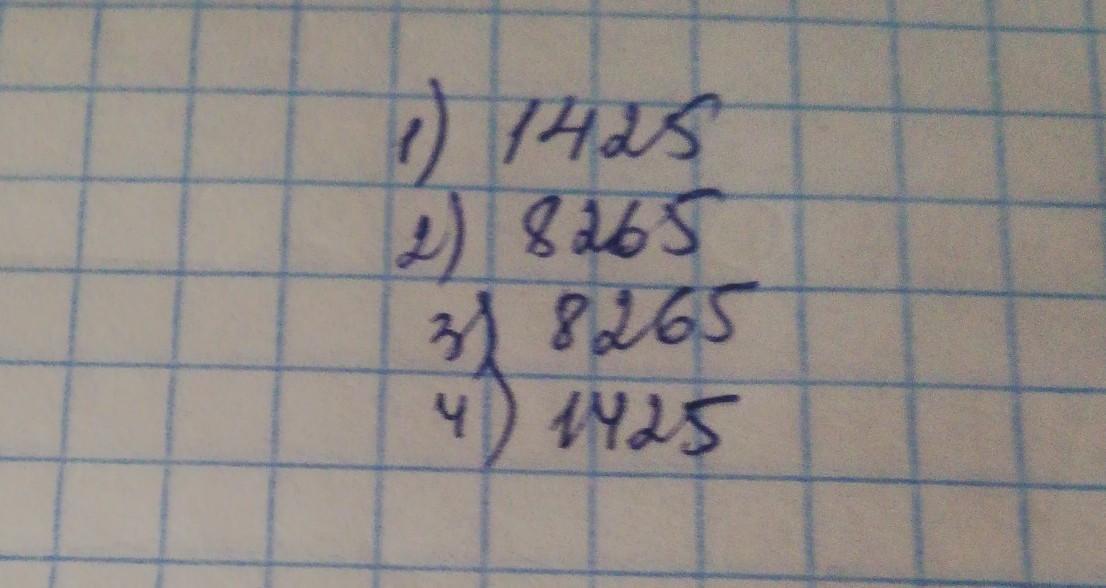 1) 1425
2) 8265
3) 8265
4) 1425